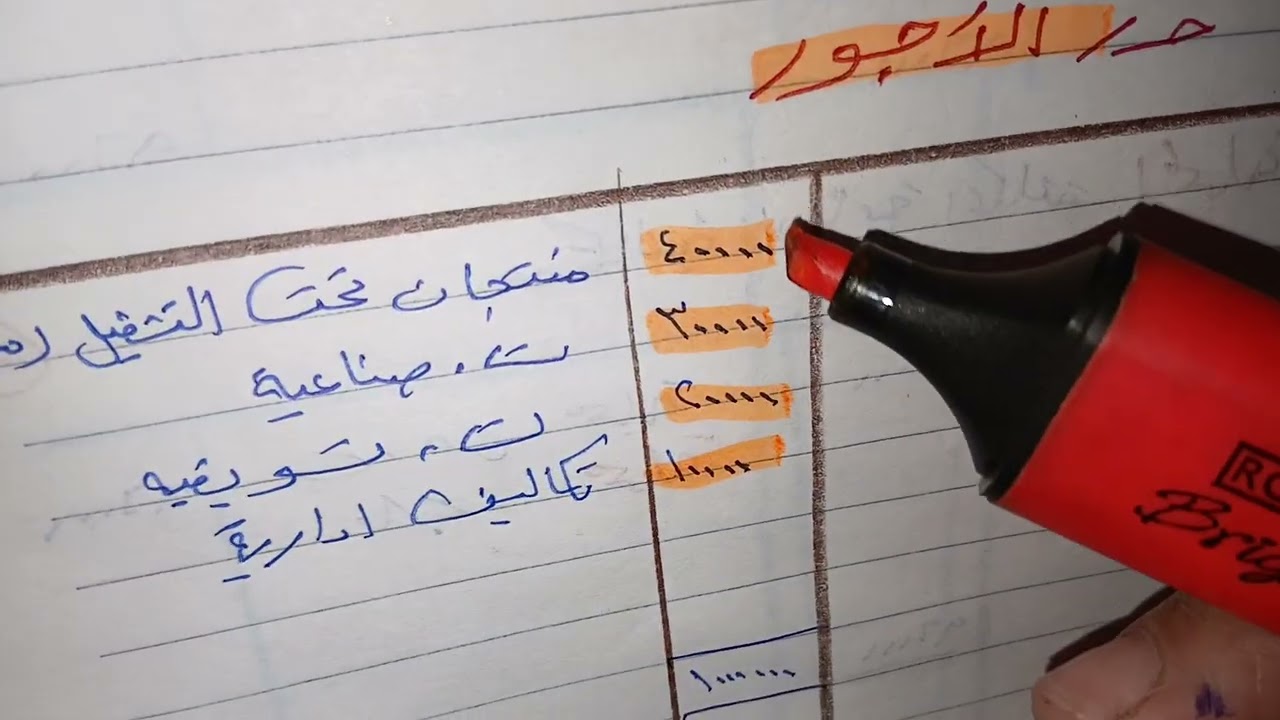 حـ/ الأجور
٤٠٠٠٠ منتجات تحت التشغيل (م
٣٠٠٠٠ ت. صناعية
٢٠٠٠٠ ت. تسويقيه
١٠٠٠٠ تكاليف ادارية
١٠٠٠٠٠